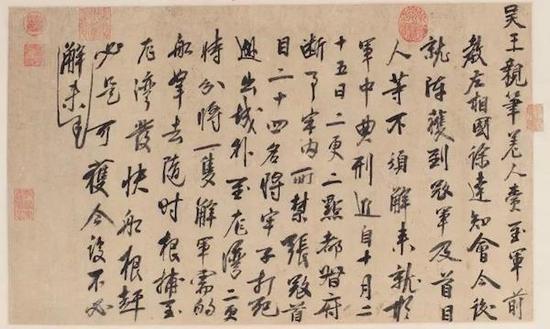 吳王親筆差人賫至軍前
教左相國徐達知會今後
就陣獲到寇軍及首目
人等不須解來就於
軍中典刑近自十月二
十五日二更二點都督府
斷事牢內所禁張寇首
目二十四名將牢子打死
出城外至龍灣二更
時分將一隻解軍需的
船去隨時根捕至
龍灣發快船根趕
必是可獲今後不必
解來